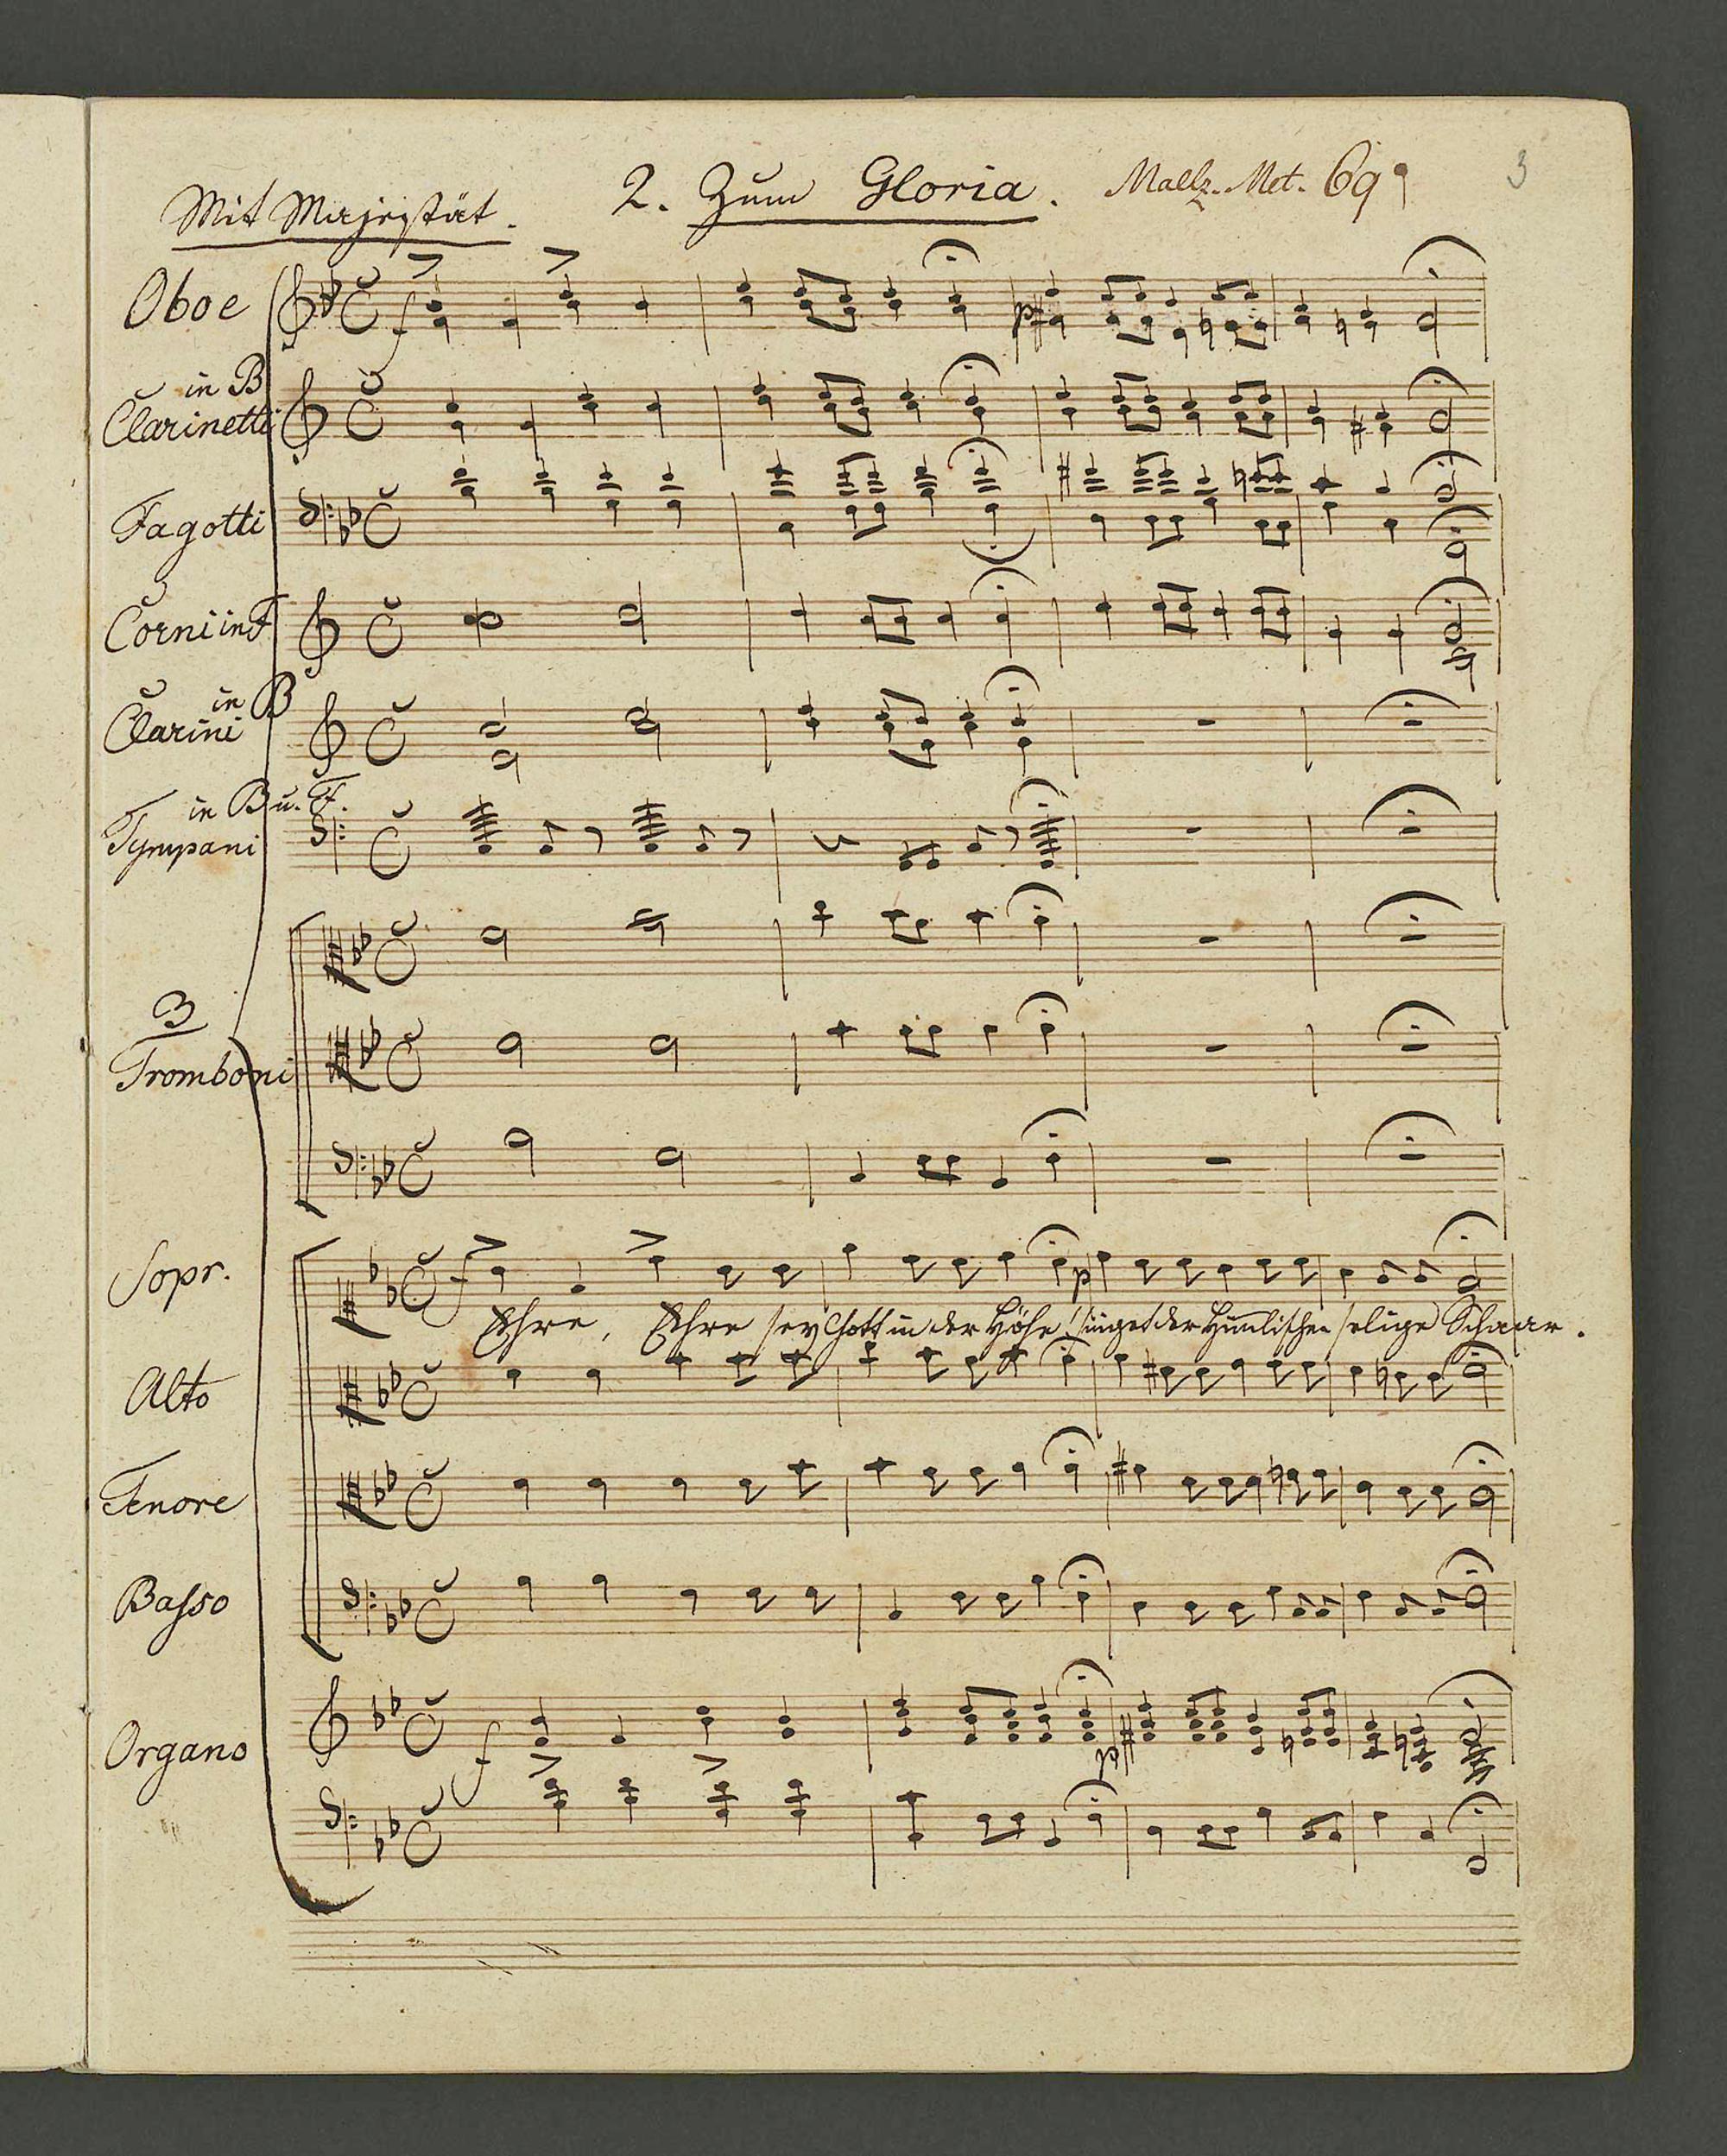 3
2. Zum Gloria. Maelz. Met. 69
Mit Majestät.
Oboe
f
p
in B
Clarinetti
Fagotti
Corni in F
in B
Clarini
in B u. F.
Tympani
3
Tromboni
Sopr.
f
p
Ehre, Ehre sey Gott in der Höhe! singet der Himlischen selige Schaar.
Alto
Tenore
Basso
Organo
f
p